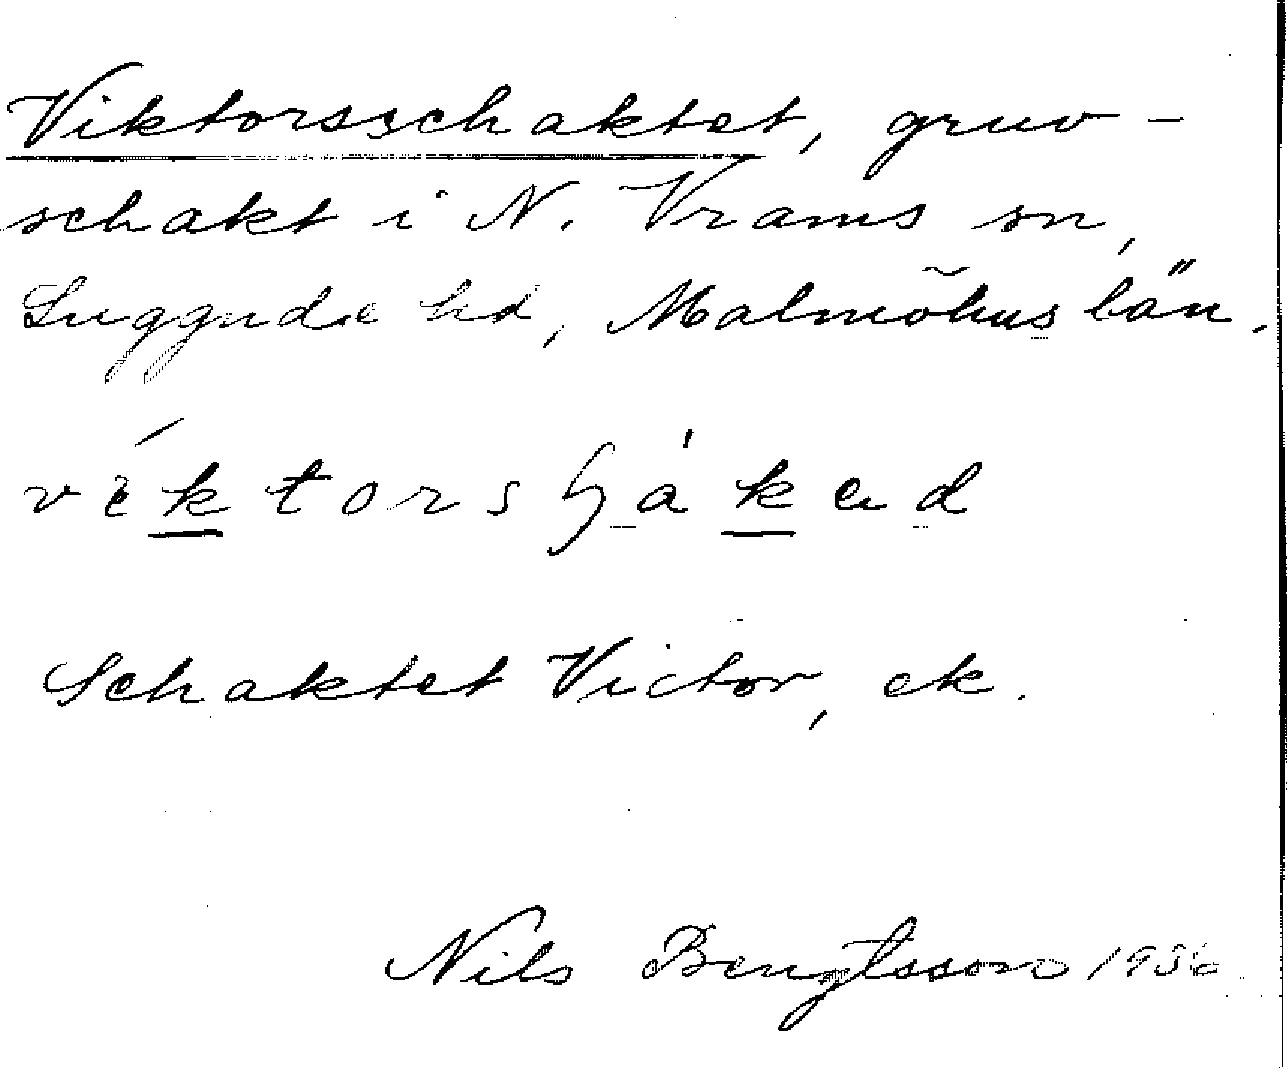 Viktorsschaktet, gruv-
schakt i N. Vrams sn,
Luggude hd, Malmöhus län.
Schaktet Victor, ek.
Nils Bengtsson